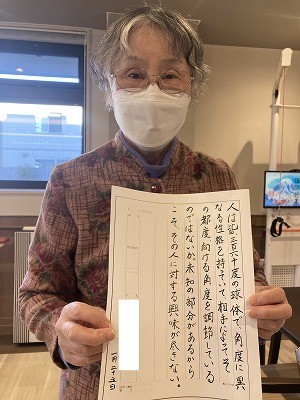 人は皆三百六十度の球体で、角度に異
なる性格を持っていて、相手によってそ
の都度向ける角度を調節している
のではないか。未知の部分があるから
こそ、その人に対する興味が尽きない。
一月二十五日